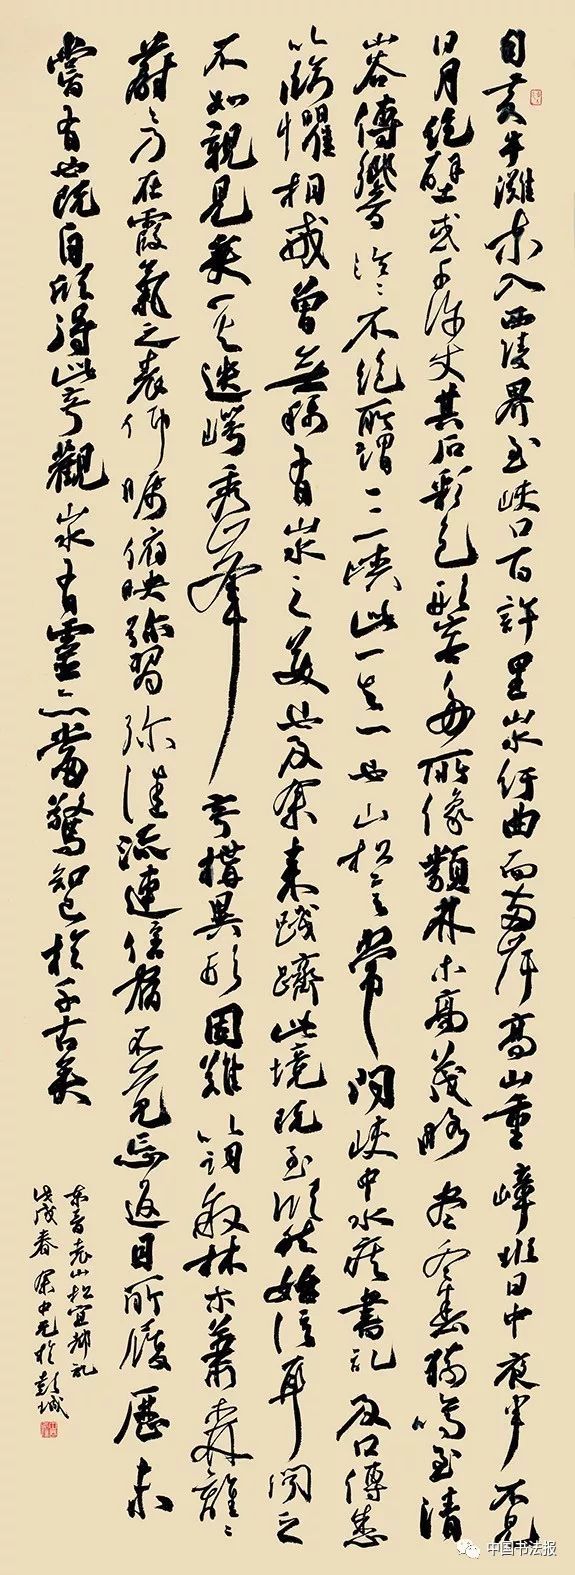 自黄牛滩东入西陵界至峡口百许里山水纡曲而两岸高山重嶂非日中夜半不见
日月绝壁或千许丈其石彩色形容多所像類林木高茂略尽冬春猿鸣至清
山谷傳響泠泠不绝所謂三峡此其一也山松言常闻峡中水疾書記及口傳悉
以临懼相戒曾無称有山水之美也及余来踐躋此境既至欣然始信耳闻之
不如親見矣其迭崿秀峰奇構異形固難以詞叙林木萧森離離
蔚蔚乃在霞氣之表仰瞩俯映弥習弥佳流連信宿不觉忘返目所履歷未
嘗有也既自欣得此奇觀山水有靈亦當驚知己於千古矣
東晋袁山松宜都記
戊戌春 於彭城
中国书法报